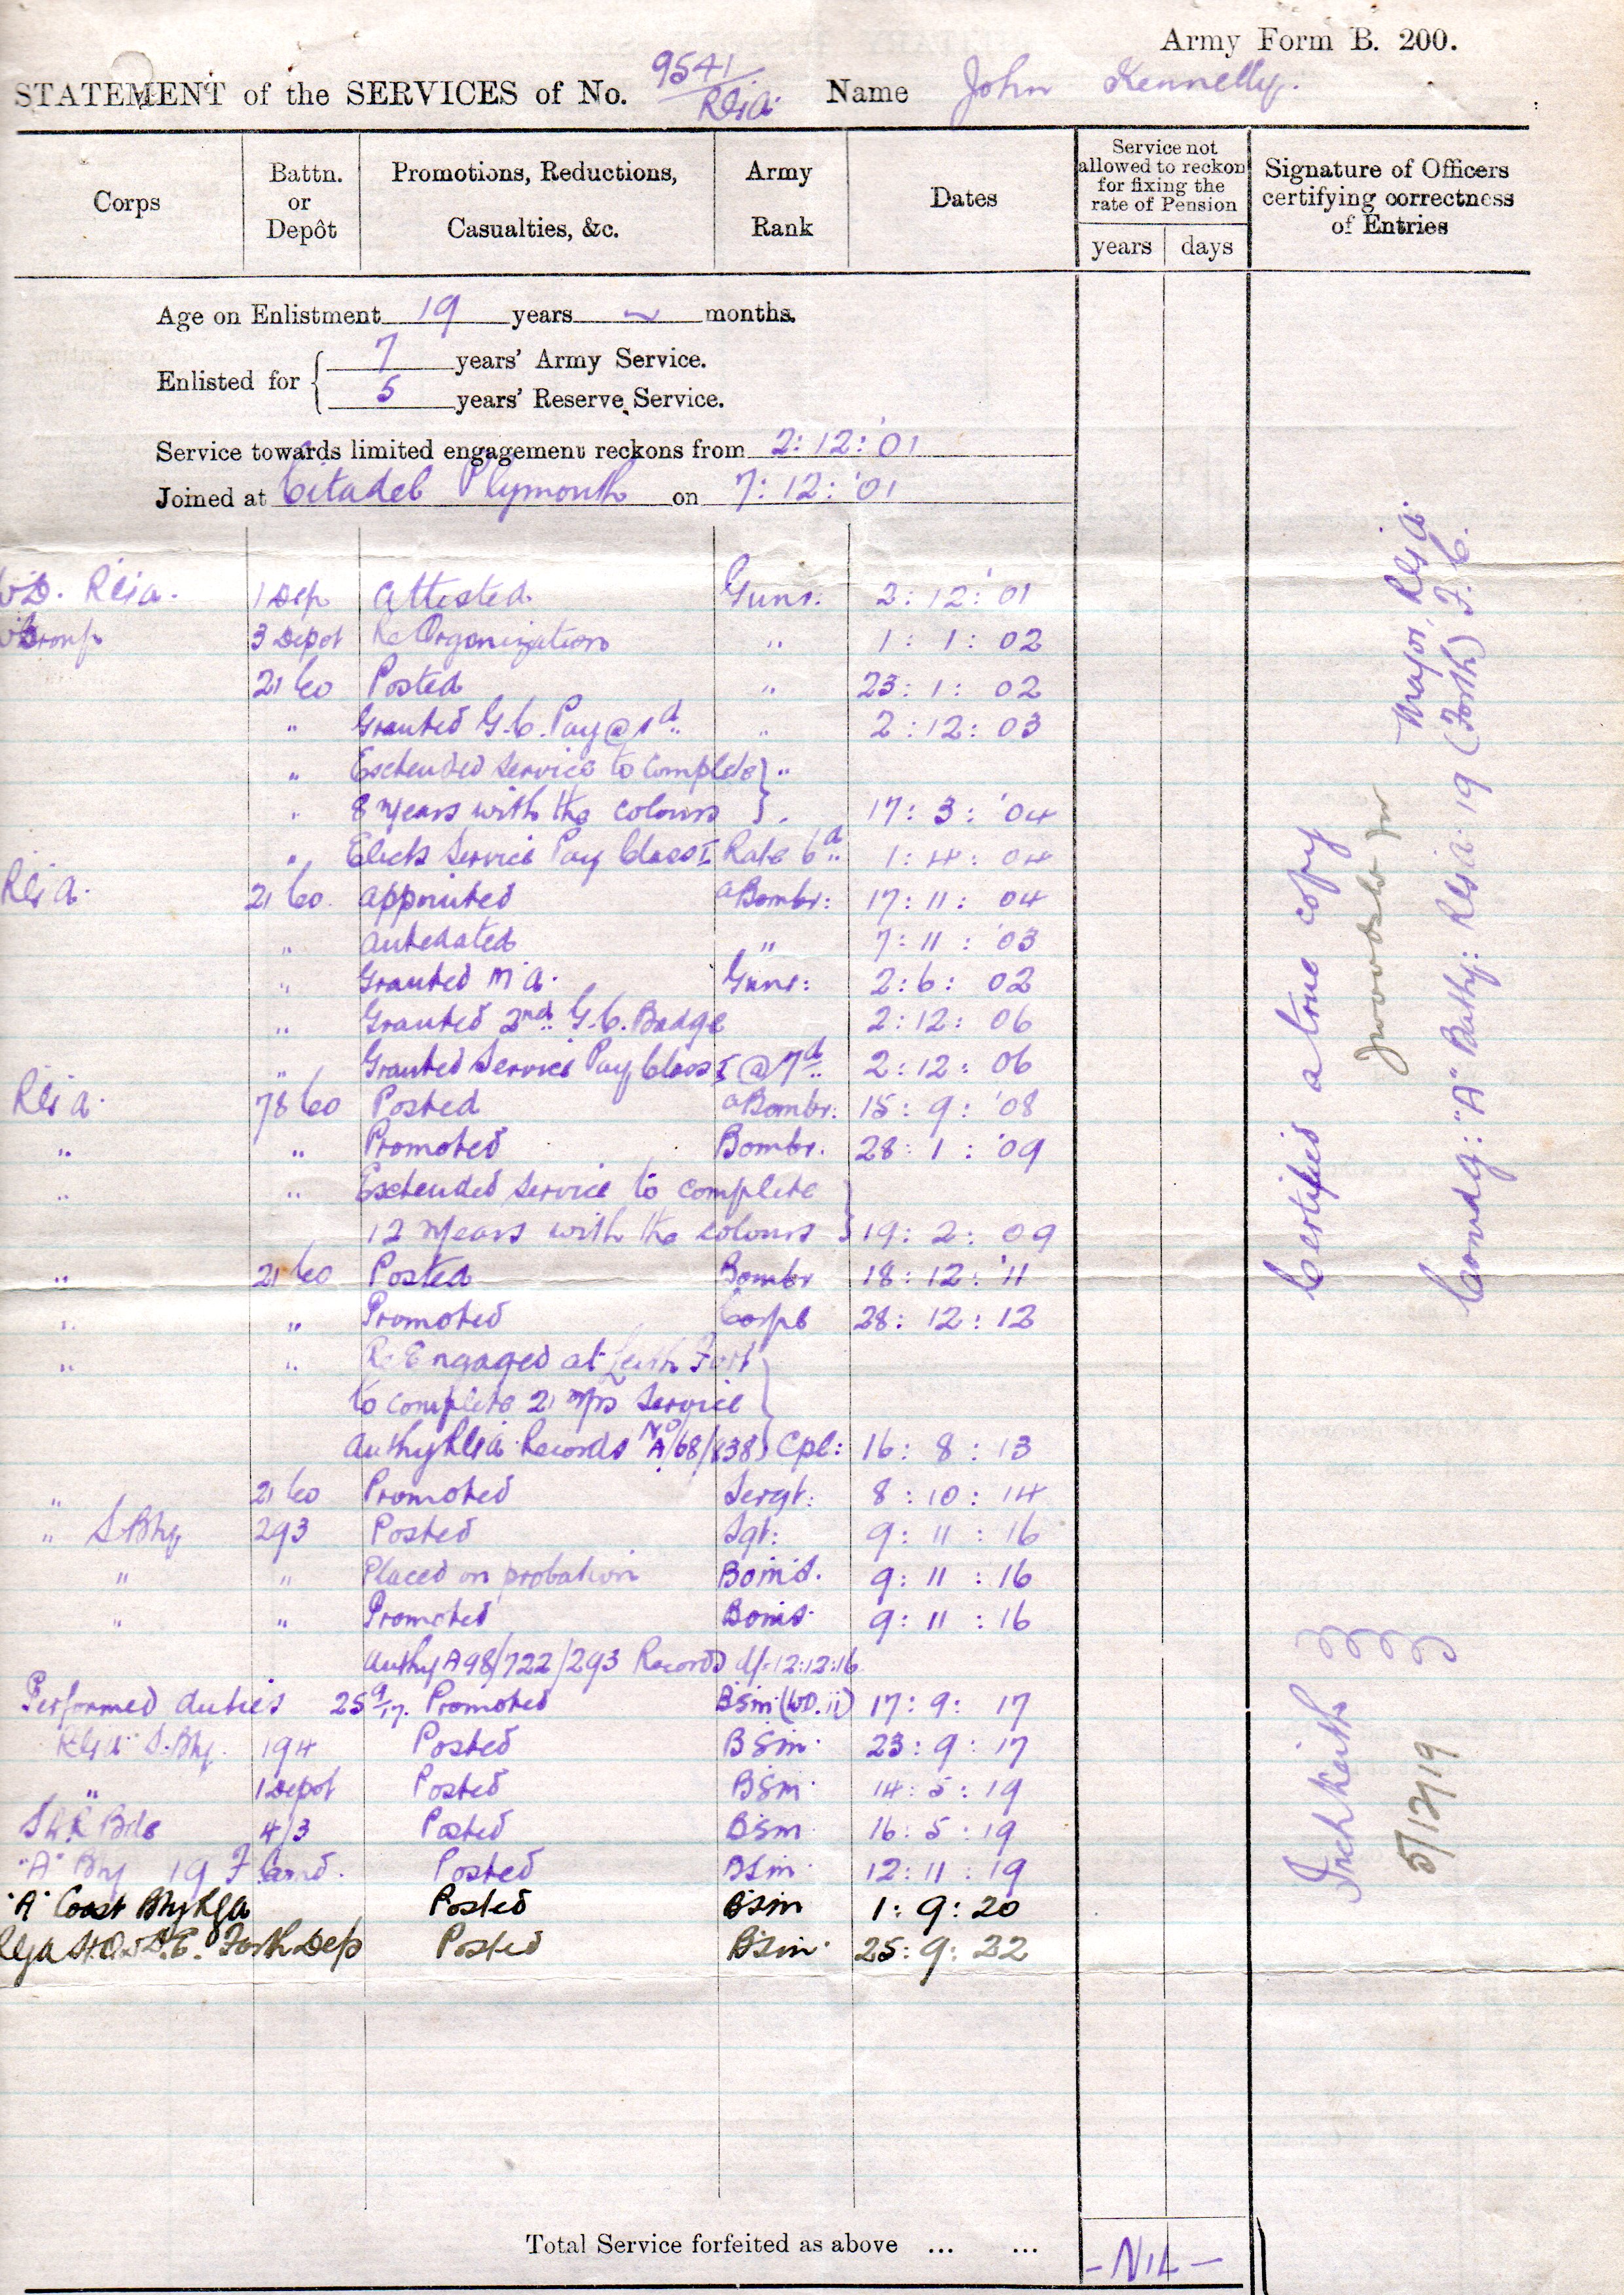 Army Form B. 200.
STATEMENT of the SERVICES of No. 9541/RGA. Name John Kennelly.
Corps
Battn. or Depôt
Promotions, Reductions, Casualties, &c.
Army Rank
Dates
Service not allowed to reckon for fixing the rate of Pension
years days
Signature of Officers certifying correctness of Entries
Age on Enlistment 19 years ~ months.
Enlisted for { 7 years' Army Service.
5 years' Reserve Service.
Service towards limited engagement reckons from 2:12:'01
Joined at Citadel Plymouth on 7:12:'01
WD. RGA. 1 Dep Attested Gunr. 2:12:'01
Group 3 Depot ReOrganization " 1:1:02
21 Co Posted " 23:1:02
" Granted G.C. Pay @ 1d " 2:12:03
" Extended service to complete } "
" 8 years with the colours } " 17:3:'04
" Elects Service Pay Class I Rate 6d 1:4:04
RGA. 21 Co. appointed aBombr: 17:11:04
" antedated " 7:11:'03
" Granted M.A. Gunr: 2:6:02
" Granted 2nd G.C. Badge 2:12:06
" Granted Service Pay Class I @ 7d 2:12:06
RGA. 78 Co Posted aBombr. 15:9:'08
" " Promoted Bombr. 28:1:'09
" " Extended service to complete }
12 years with the colours } 19:2:09
" 21 Co Posted Bombr 18:12:'11
" " Promoted Corpl 28:12:12
" " Re Engaged at Leith Fort }
to complete 21 yrs Service }
Authy RGA Records No A/68/838 } Cpl: 16:8:13
" 21 Co Promoted Sergt: 8:10:14
" S.Bty 293 Posted Sgt: 9:11:16
" " Placed on probation 9:11:16
" " Promoted 9:11:16
Authy A98/722/293 Records d/- 12:12:16
Performed duties 25 9/17. Promoted BSM (WO.ii) 17:9:17
RGA S.Bty. 194 Posted BSM. 23:9:17
" 1 Depot Posted BSM. 14:5:19
Bde 4/3 Posted BSM. 16:5:19
"A" Bty 19 F. Comd. Posted BSM. 12:11:19
"A" Coast Bty RGA Posted BSM 1:9:20
RGA Forth Dep Posted BSM. 25:9:22
Certified a true copy
for
Major, RGA.
Comdg: "A" Batty: RGA. 19 (Forth) F.C.
Inchkeith
5/12/19
Total Service forfeited as above ... ... -NIL-